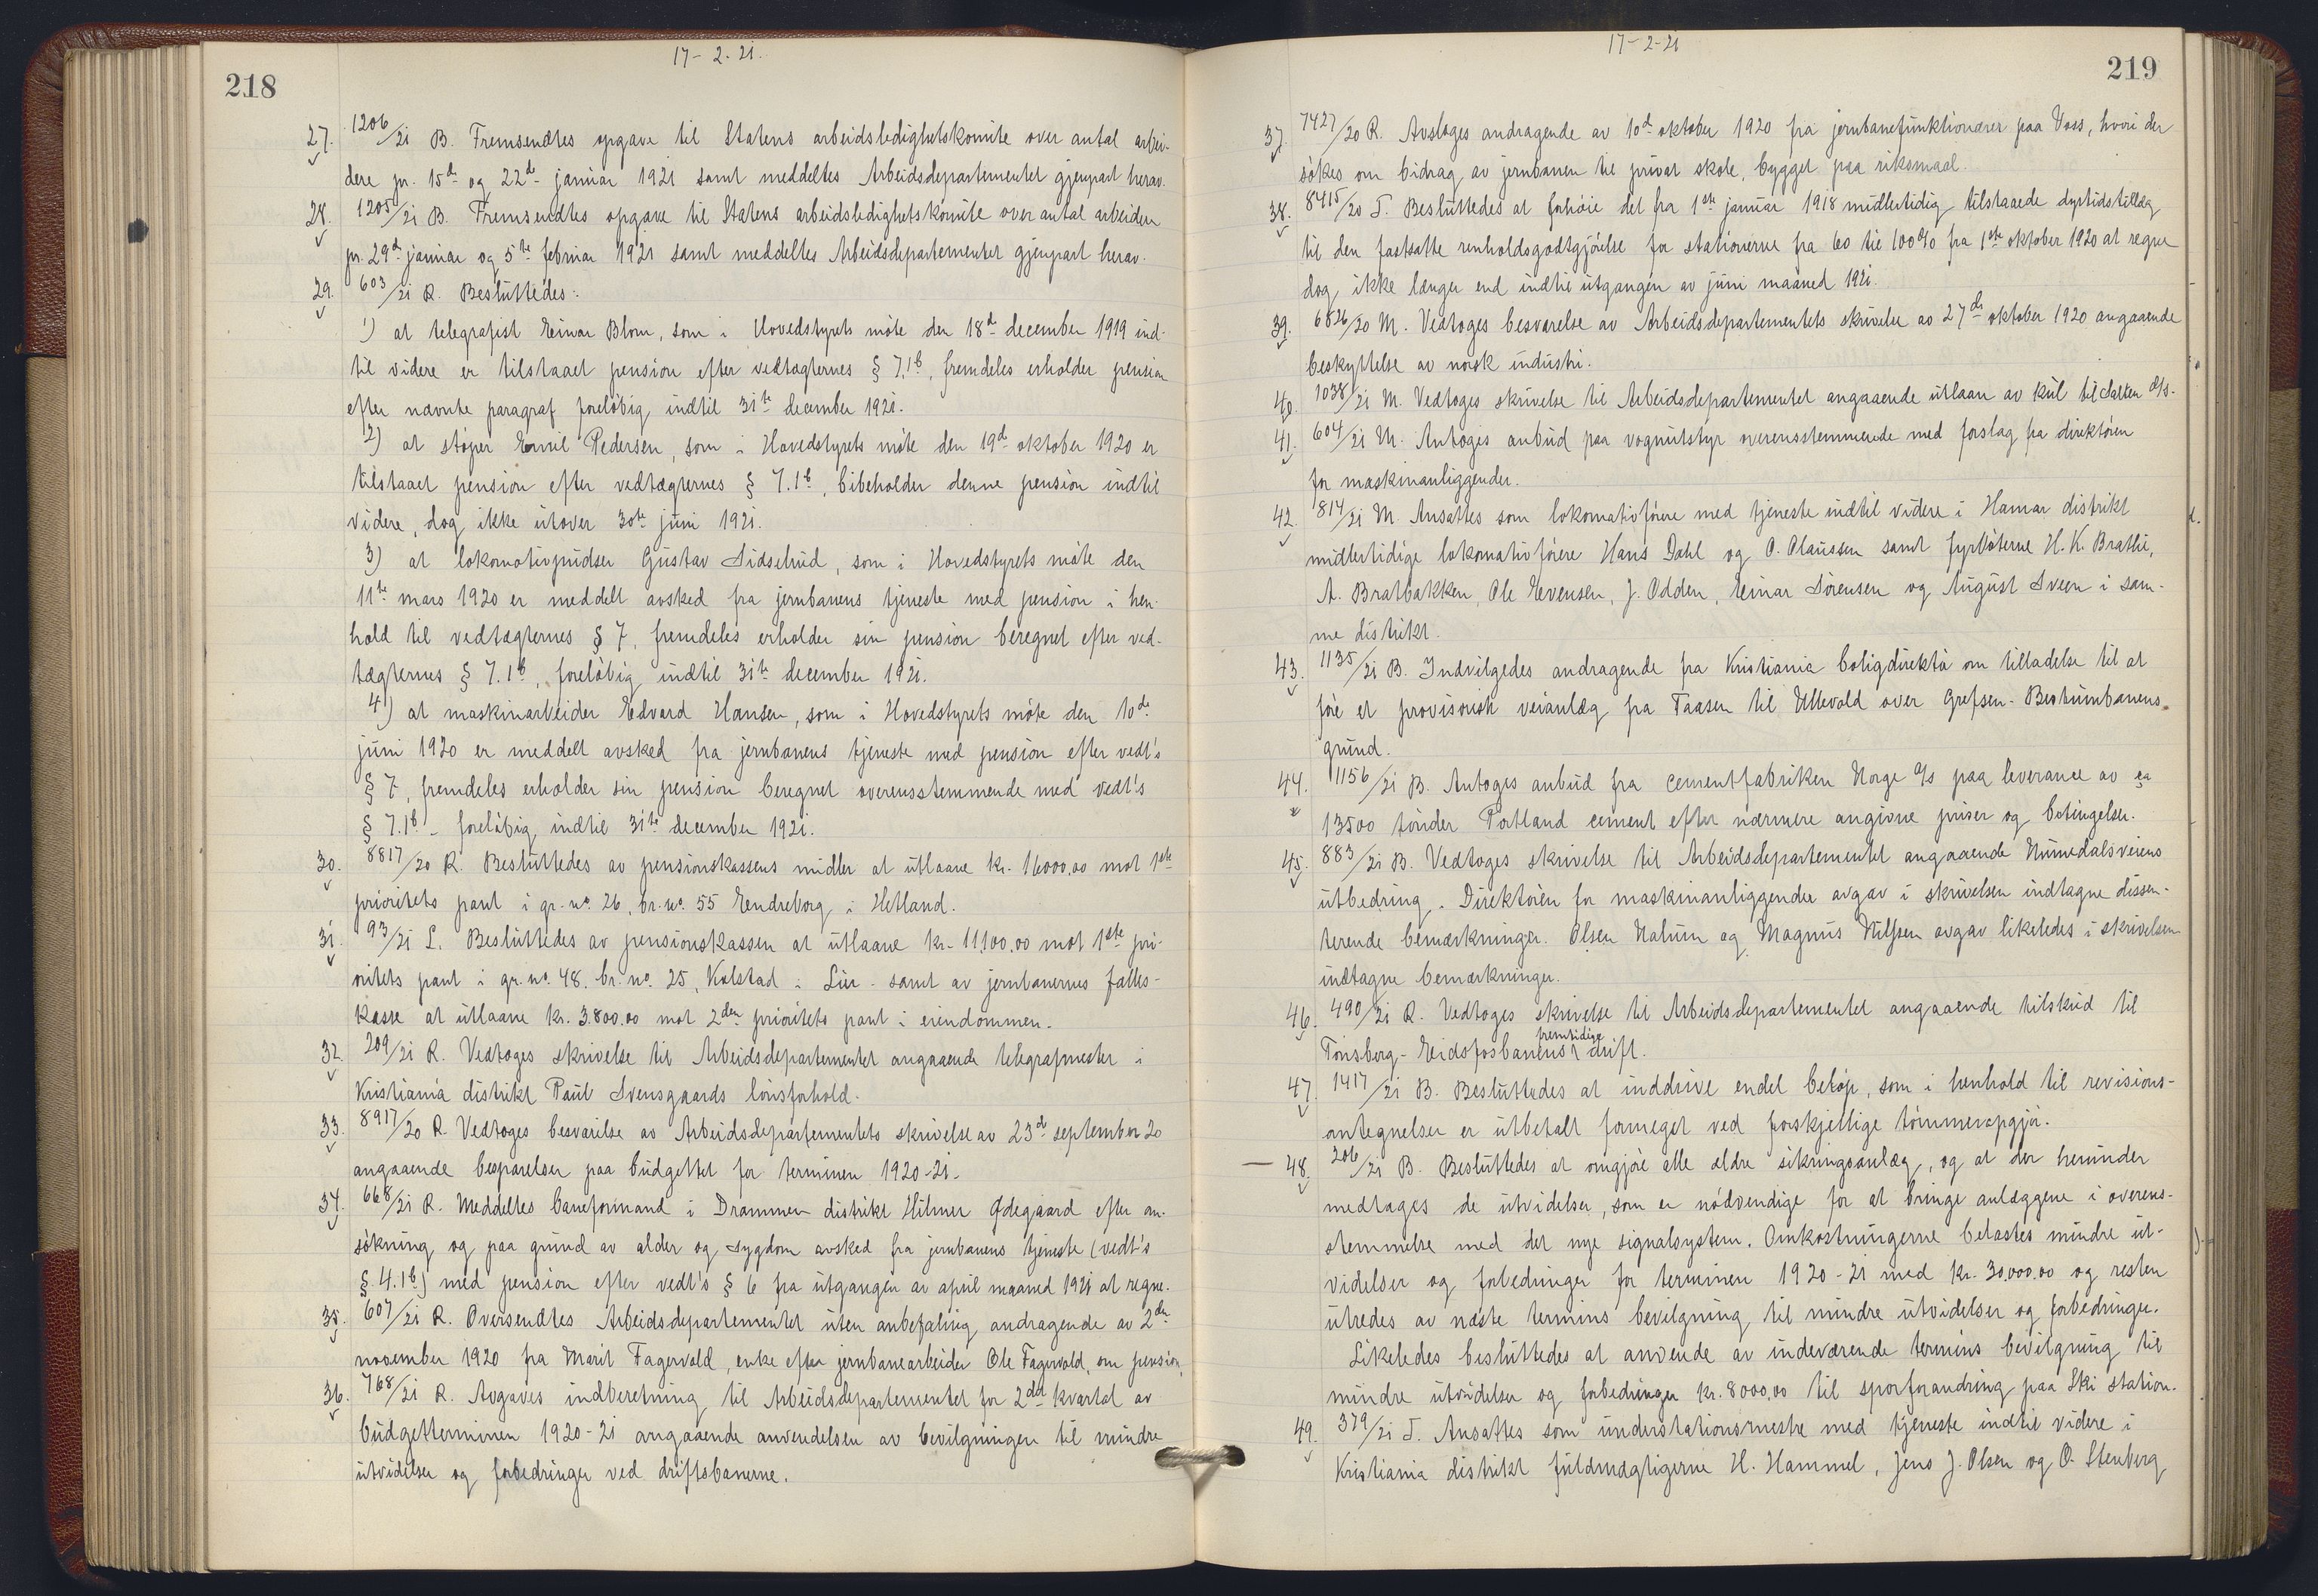 17-2-21.
218
27. 1206/21 B. Fremsendtes opgave til Statens arbeidsledighetskomite over antal arbei-
dere pr. 15de og 22de januar 1921 samt meddeltes Arbeidsdepartementet gjenpart herav.
28. 1205/21 B. Fremsendtes opgave til Statens arbeidsledighetskomite over antal arbeidere
pr. 29de januar og 5te februar 1921 samt meddeltes Arbeidsdepartementet gjenpart herav.
29. 603/21 R. Besluttedes:
1) at telegrafist Einar Blom, som i Hovedstyrets møte den 18de december 1919 ind-
til videre er tilstaaet pension efter vedtægternes § 7.1b, fremdeles erholder pension
efter nævnte paragraf foreløbig indtil 31te december 1921.
2) at støper Emil Pedersen, som i Hovedstyrets møte den 19de oktober 1920 er
tilstaaet pension efter vedtægternes § 7.1b, bibeholder denne pension indtil
videre, dog ikke utover 30te juni 1921.
3) at lokomotivpudser Gustav Sidselrud, som i Hovedstyrets møte den
11te mars 1920 er meddelt avsked fra jernbanens tjeneste med pension i hen-
hold til vedtægternes § 7, fremdeles erholder sin pension beregnet efter ved-
tægternes § 7.1b, foreløbig indtil 31te december 1921.
4) at maskinarbeider Edvard Hansen, som i Hovedstyrets møte den 10de
juni 1920 er meddelt avsked fra jernbanens tjeneste med pension efter vedt's
§ 7, fremdeles erholder sin pension beregnet overensstemmende med vedt's
§ 7.1b - foreløbig indtil 31te december 1921.
30. 8817/20 R. Besluttedes av pensionskassens midler at utlaane kr. 16000,00 mot 1ste
prioritets pant i gr. no. 26, br. no. 55 Endreborg i Hetland.
31. 93/21 L. Besluttedes av pensionskassen at utlaane kr. 11,100,00 mot 1ste pri-
oritets pant i gr. no. 48, br. no. 25, Kolstad i Lier - samt av jernbanernes fælles-
kasse at utlaane kr. 3.800,00 mot 2den prioritets pant i eiendommen.
32. 209/21 R. Vedtoges skrivelse til Arbeidsdepartementet angaaende telegrafmester i
Kristiania distrikt Paul Svensgaards lønsforhold.
33. 8917/20 R. Vedtoges besvarelse av Arbeidsdepartementets skrivelse av 23de september 20
angaaende besparelser paa budgettet for terminen 1920-21.
34. 668/21 R. Meddeltes baneformand i Drammen distrikt Hilmer Ødegaard efter an-
søkning og paa grund av alder og sygdom avsked fra jernbanens tjeneste (vedt's
§ 4.1b) med pension efter vedt's § 6 fra utgangen av april maaned 1921 at regne.
35. 607/21 R. Oversendtes Arbeidsdepartementet uten anbefaling andragende av 2den
november 1920 fra Marit Fagervold, enke efter jernbanearbeider Ole Fagervold, om pension.
36. 768/21 R. Avgaves indberetning til Arbeidsdepartementet for 2det kvartal av
budgetterminen 1920-21 angaaende anvendelsen av bevilgningen til mindre
utvidelser og forbedringer ved driftsbanerne.
17-2-21
219
37. 7427/20 R. Avsloges andragende av 10de oktober 1920 fra jernbanefunktionærer paa Voss, hvori der
søkes om bidrag av jernbanen til privat skole, bygget paa riksmaal.
38. 8415/20 T. Besluttedes at forhøie det fra 1ste januar 1918 midlertidig tilstaaede dyrtidstillæg
til den fastsatte renholdsgodtgjørelse for stationerne fra 60 til 100% fra 1ste oktober 1920 at regne
dog ikke længer end indtil utgangen av juni maaned 1921.
39. 6826/20 M. Vedtoges besvarelse av Arbeidsdepartementets skrivelse av 27de oktober 1920 angaaende
beskyttelse av norsk industri.
40. 1038/21 M. Vedtoges skrivelse til Arbeidsdepartementet angaaende utlaan av kul til Salten A/s.
41. 604/21 M. Antoges anbud paa vognutstyr overensstemmende med forslag fra direktøren
for maskinanliggender.
42. 1814/21 M. Ansattes som lokomotivførere med tjeneste indtil videre i Hamar distrikt
midlertidige lokomotivførere Hans Dahl og O. Olaussen samt fyrbøterne H. K. Brathe,
A. Bratbakken, Ole Evensen, J. Odden, Einar Sørensen og August Sveen i sam-
me distrikt.
43. 1135/21 B. Indvilgedes andragende fra Kristiania boligdirektør om tilladelse til at
føre et provisorisk veianlæg fra Taasen til Ullevold over Grefsen-Bestumbanens
grund.
44. 1156/21 B. Antoges anbud fra cementfabriken Norge A/s paa leverance av ca
13500 tønder Portland cement efter nærmere angivne priser og betingelser.
45. 883/21 B. Vedtoges skrivelse til Arbeidsdepartementet angaaende Numedalsveiens
utbedring. Direktøren for maskinanliggender avgav i skrivelsen indtagne dissen-
terende bemærkninger. Olsen Nalum og Magnus Nilssen avgav likeledes i skrivelsen
indtagne bemærkninger.
46. 490/21 R. Vedtoges skrivelse til Arbeidsdepartementet angaaende tilskud til
Tønsberg-Eidsfosbanens fremtidige drift.
47. 1417/21 B. Besluttedes at inddrive endel beløp, som i henhold til revisions-
antegnelser er utbetalt formeget ved forskjellige tømmeropgjør.
48. 206/21 B. Besluttedes at omgjøre alle ældre sikringsanlæg, og at der herunder
medtages de utvidelser, som er nødvendige for at bringe anlæggene i overens-
stemmelse med det nye signalsystem. Omkostningerne belastes mindre ut-
videlser og forbedringer for terminen 1920-21 med kr. 30,000,00 og resten
utredes av næste termins bevilgning til mindre utvidelser og forbedringer.
Likeledes besluttedes at anvende av indeværende termins bevilgning til
mindre utvidelser og forbedringer kr. 8000,00 til sporforandring paa Ski station.
49. 379/21 T. Ansattes som understationsmestre med tjeneste indtil videre i
Kristiania distrikt fuldmægtigerne H. Hammel, Jens J. Olsen og O. Stenberg